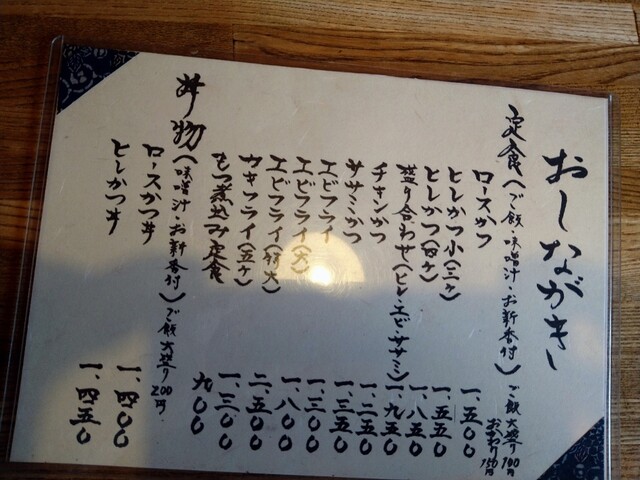 おしながき
定食(ご飯・味噌汁・お新香付)ご飯大盛り100円
おかわり150円
ロースかつ 一、五〇〇
ヒレかつ小(三ヶ) 一、五五〇
ヒレかつ(四ヶ) 一、八五〇
盛り合わせ(ヒレ・エビ・ササミ) 一、九五〇
チキンかつ 一、二五〇
ササミかつ 一、三五〇
エビフライ 一、三〇〇
エビフライ(大) 一、八〇〇
エビフライ(特大) 二、五〇〇
カキフライ(五ヶ) 一、三〇〇
もつ煮込み定食 九〇〇
丼物(味噌汁・お新香付)ご飯大盛り200円
ロースかつ丼 一、四〇〇
ヒレかつ丼 一、四五〇